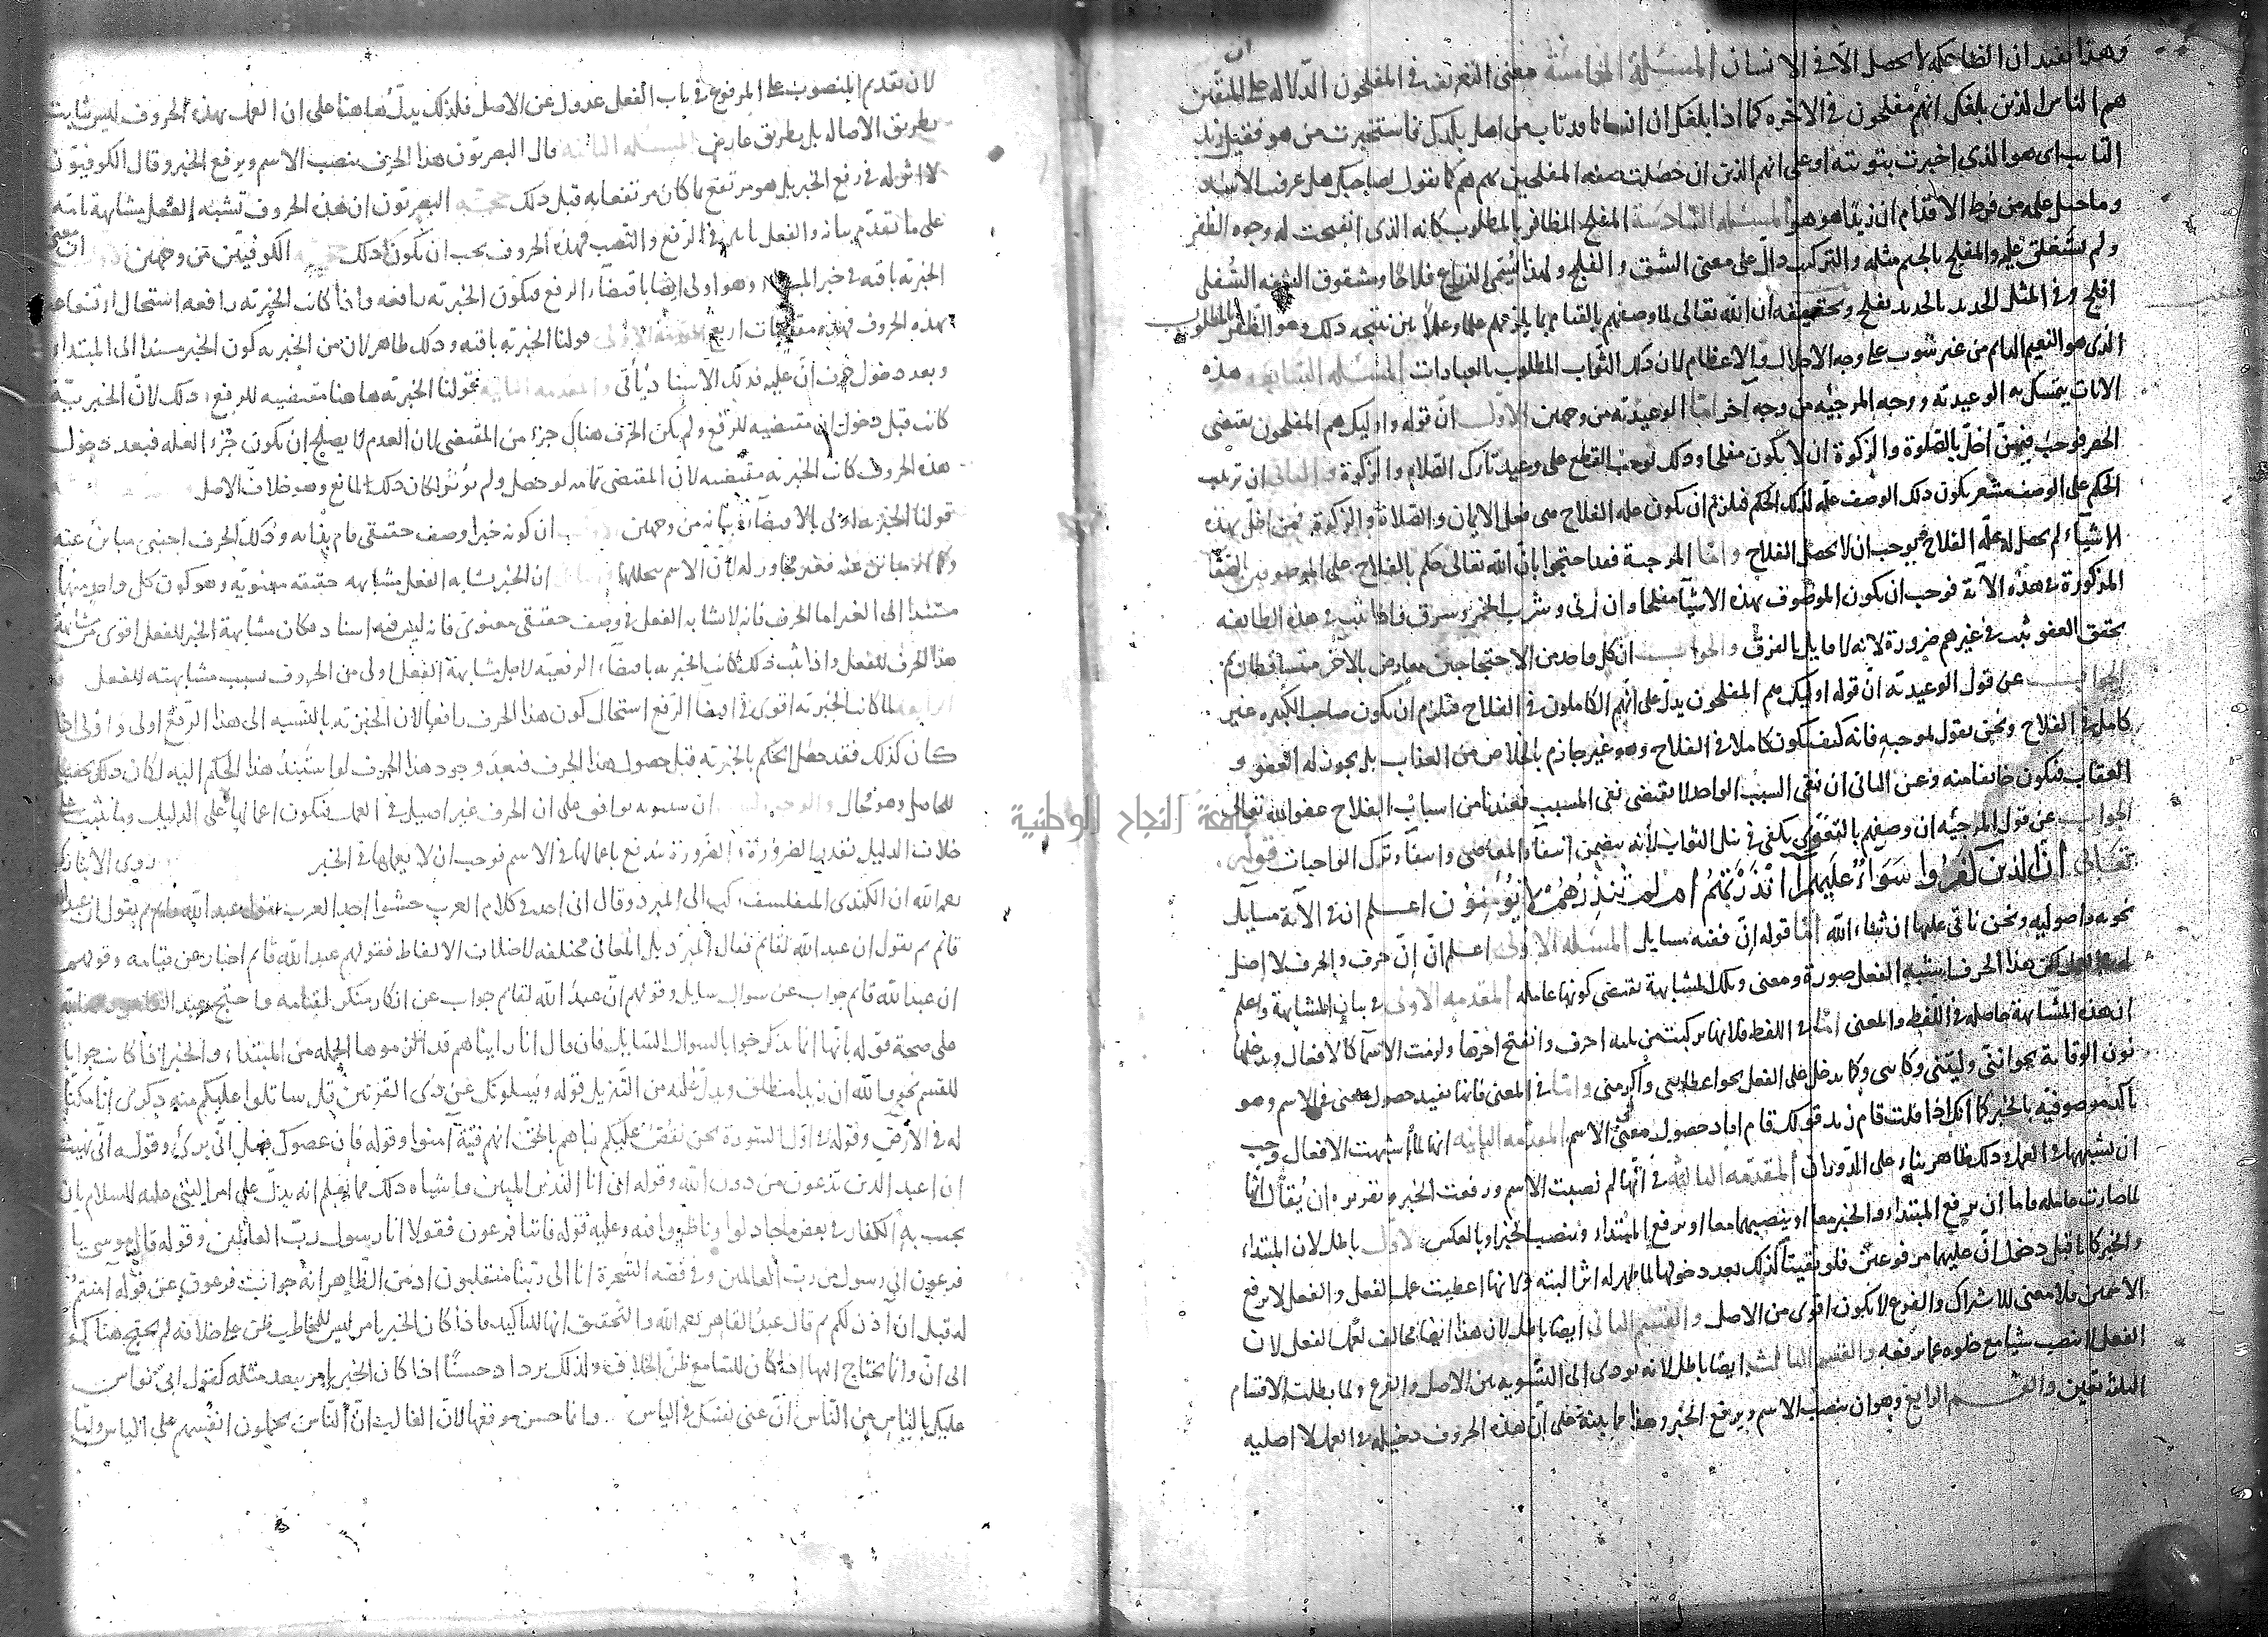 وهذا يفيد ان الضاحكه لا تحصل الا في الانسان المسئلة الخامسة معنى التعريف في المفلحون الدلاله على ان المتقين
هم الناس الذين بلغك انهم مفلحون في الاخره كما اذا بلغك ان انسانا قد تاب من اهل بلدك فاستخبرت من هو فقيل زيد
التايب اى هو الذى اخبرت بتوبته او على انهم الذين ان حصلت صفه المفلحين فهم هم كما تقول لصاحبك هل عرفت الاسد
وما جبل عليه من فرط الاقدام ان زيدا هو هو المسئله السادسة المفلح الظافر بالمطلوب كانه الذى انفتحت له وجوه الظفر
ولم تستغلق عليه والمفلج بالجيم مثله والتركيب دال على معنى الشق والفلج ولهذا يسمى الزراع فلاحا ومشقوق الشفه السفلى
افلح وفي المثل الحديد بالحديد يفلح وتحقيقه ان الله تعالى لما وصفهم بالقيام بما يلزمهم علما وعملا بين نتيجه ذلك وهو الظفر بالمطلوب
الذى هو النعيم الدايم من غير شوب على وجه الاجلال والاعظام لان ذلك الثواب المطلوب بالعبادات المسئله السابعه هذه
الايات يتمسك به الوعيديه من وجه والمرجئه من وجه آخر اما الوعيديه من وجهين الاول ان قوله واوليك هم المفلحون يقتضى
الحصر فوجب فيمن اخل بالصلوة والزكوة ان لا يكون مفلحا وذلك يوجب القطع على وعيد تارك الصلاه والزكوة والثانى ان ترتيب
الحكم على الوصف مشعر بكون ذلك الوصف علة لذلك الحكم فيلزم ان يكون عله الفلاح هى فعل الايمان والصلاة والزكوة فمن اخل بهذه
الاشياء لم يحصل له علة الفلاح فوجب ان لا يحصل الفلاح واما المرجية فقد احتجوا بان الله تعالى حكم بالفلاح على الموصوفين بالصفات
المذكورة في هذه الآية فوجب ان يكون الموصوف بهذه الاشيآ مفلحا وان زنى وشرب الخمر وسرق فاذا ثبت في هذه الطايفه
تحقق العفو ثبت في غيرهم ضرورة لانه لا قايل بالفرق والجواب ان كل واحد من الاحتجاجين معارض بالآخر فيتساقطان ثم
الجواب عن قول الوعيديه ان قوله اوليك هم المفلحون يدل على انهم الكاملون في الفلاح فيلزم ان يكون صاحب الكبيره غير
كامل في الفلاح ونحن نقول بموجبه فانه كيف يكون كاملا في الفلاح وهو غير جازم بالخلاص من العذاب بل يجوز له العفو و
العقاب فيكون خايفا منه وعن الثانى ان نفى السبب الواحد لا يقتضى نفى المسبب فعندنا من اسباب الفلاح عفو الله تعالى
الجواب عن قول المرجئه ان وصفهم بالتقوى يكفى في نيل الثواب لانه يتضمن اتقآء المعاصى واتقآء ترك الواجبات قوله
تعالى ان الذين كفروا سواء عليهم أأنذرتهم ام لم تنذرهم لا يؤمنون اعلم ان في الآية مسايل
نحويه واصوليه ونحن ناتى عليها ان شاء الله اما قوله ان ففيه مسايل المسئله الاولى اعلم ان إن حرف والحرف لا اصل
له في العمل لكن هذا الحرف اشبه الفعل صورة ومعنى وتلك المشابهة تقتضى كونها عامله المقدمه الاولى في بيان المشابهة واعلم
ان هذه المشابهة حاصله في اللفظ والمعنى اما في اللفظ فلانها تركبت من ثلثه احرف وانفتح آخرها ولزمت الاسمآ كالافعال ويدخلها
نون الوقاية نحو اننى وليتنى وكاننى وكما يدخل على الفعل نحو اعطانى واكرمنى واما في المعنى فانها تفيد حصول معنى في الاسم وهو
تاكد موصوفيه بالخبر كما انك اذا قلت قام زيد فقولك قام افاد حصول معنى في الاسم المقدمه الثانيه انها لما اشبهت الافعال وجب
ان تشبهها في العمل وذلك ظاهر بناء على الدوران المقدمه الثالثه في انها لم نصبت الاسم ورفعت الخبر وتقريره ان يقال انها
لما صارت عامله فاما ان ترفع المبتداء والخبر معا او ينصبهما معا او ترفع المبتداء وتنصب الخبر او بالعكس والاول باطل لان المبتداء
والخبر كانا قبل دخول ان عليهما مرفوعين فلو بقيتا كذلك بعد دخولها لما ظهر له اثر البته ولانها اعطيت عمل الفعل والفعل لا يرفع
الاسمين فلا معنى للاشراك والفرع لا يكون اقوى من الاصل والقسم الثانى ايضا باطل لان هذا ايضا مخالف لعمل الفعل لان
الفعل لا ينصب شيا مع خلوه عما يرفعه والقسم الثالث ايضا باطل لانه يودى الى التسويه بين الاصل والفرع ولما بطلت الاقسام
الثلثه تعين والقسم الرابع وهو ان ينصب الاسم ويرفع الخبر وهذا مما ينبه على ان هذه الحروف دخيله في العمل لا اصليه
لان تقديم المنصوب على المرفوع في باب الفعل عدول عن الاصل فلذلك يدل هاهنا على ان العمل بهذه الحروف ليس بثابت
بطريق الاصاله بل بطريق عارض المسئله الثانيه قال البصريون هذا الحرف ينصب الاسم ويرفع الخبر وقال الكوفيون
لا اثر له في رفع الخبر بل هو مرتفع بما كان مرتفعا به قبل ذلك حجه البصريون ان هذه الحروف تشبه الفعل مشابهة تامه
على ما تقدم بيانه والفعل له تاثير في الرفع والنصب فهذه الحروف يجب ان تكون كذلك الكوفيين من وجهين ان معنى
الخبريه باقيه في خبر المبتدا وهو اولى ايضا باقتضاء الرفع فيكون الخبريه رافعه واذا كانت الخبريه رافعه استحال ارتفاعه
بهذه الحروف فهذه مقدمات اربع الاولى قولنا الخبريه باقيه وذلك ظاهر لان من الخبريه كون الخبر مسندا الى المبتدا
وبعد دخول حرف ان عليه فذلك الاسناد باقى والمقدمه الثانيه قولنا الخبريه هاهنا مقتضيه للرفع وذلك لان الخبرية
كانت قبل دخول ان مقتضيه للرفع ولم يكن الحرف هناك جزءا من المقتضى لان العدم لا يصلح ان يكون جزء العله فبعد دخول
هذه الحروف كانت الخبريه مقتضيه لان المقتضى بتمامه لو حصل ولم يوثر لكان ذلك لمانع وهو خلاف الاصل
قولنا الخبريه اولى بالاقتضآء بيانه من وجهين ان كونه خبرا وصف حقيقى قام بذاته وذلك الحرف اجنبى مباين عنه
وكما انه مباين عنه فغير مجاور له لان الاسم يتخللهما ان الخبر يشابه الفعل مشابهه حقيقه معنويه وهو كون كل واحد منهما
مسندا الى الغير اما الحرف فانه لا يشابه الفعل في وصف حقيقى معنوى فانه ليس فيه اسناد فكان مشابهة الخبر للفعل اقوى من مشابهة
هذا الحرف للفعل واذا ثبت ذلك كانت الخبريه باقتضآء الرفع لاجل مشابهة الفعل اولى من الحروف بسبب مشابهته للفعل
لما كانت الخبريه اقوى في اقتضا الرفع استحال كون هذا الحرف رافعا لان الخبريه بالنسبه الى هذا الرفع اولى واذا
كان كذلك فقد حصل الحكم بالخبرية قبل حصول هذا الحرف فبعد وجود هذا الحرف لو استند هذا الحكم اليه لكان ذلك تحصيلا
للحاصل وهو محال والوجه ان سيبويه يوافق على ان الحرف غير اصيل في العمل فيكون اعمالها على خلاف الدليل وما ثبت على
خلاف الدليل يقدر بقدر الضرورة والضرورة تندفع باعمالها في الاسم فوجب ان لا يعملها في الخبر روى الانبارى
رحمه الله ان الكندى المتفلسف ركب الى المبرد وقال انى اجد في كلام العرب حشوا اجد العرب تقول عبد الله قايم ثم يقول ان عبد الله
قائم ثم يقول ان عبد الله لقائم فقال المبرد بل المعانى مختلفه لاختلاف الالفاظ فقولهم عبد الله قائم اخبار عن قيامه وقولهم
ان عبد الله قائم جواب عن سوال سايل وقولهم ان عبد الله لقائم جواب عن انكار منكر لقيامه واحتج عبد القاهر
على صحة قوله بانها انما يذكر جوابا لسوال السايل فان قال انا راينا هم قد الزموها الجمله من المبتداء والخبر اذا كانت جوابا
للقسم نحو والله ان زيدا منطلق ويدل عليه من التنزيل قوله ويسئلونك عن ذى القرنين قل ساتلوا عليكم منه ذكرى انا مكنا
له في الارض وقوله في اول السورة نحن نقص عليك نباهم بالحق انهم فتية آمنوا وقوله فان عصوك فقل انى برىء وقوله انى نهيت
ان اعبد الذين تدعون من دون الله وقوله انى انا النذير المبين واشباه ذلك مما يعلم انه يدل على امر النبى عليه السلام بان
يجيب به الكفار في بعض ما جادلوا وناظروا فيه وعليه قوله فاتيا فرعون فقولا انا رسول رب العالمين وقوله قال موسى يا
فرعون انى رسول من رب العالمين وفي قصه السحرة انا الى ربنا منقلبون اذ من الظاهر انه جواب فرعون عن قوله امنتم
له قبل ان آذن لكم ثم قال عبد القاهر رحمه الله والتحقيق انها للتاكيد فاذا كان الخبر بامر ليس للمخاطب ظن على خلافه لم يحتج هناك
الى ان وانما يحتاج اليها اذا كان للسامع ظن الخلاف ولذلك يزداد حسنا اذا كان الخبر بامر يبعد مثله كقول ابى نواس
عليك بالياس من الناس ان غنى نفسك في الياس وانما حسن موقعها لان الغالب ان الناس لا يحملون انفسهم على الياس
جامعة النجاح الوطنية